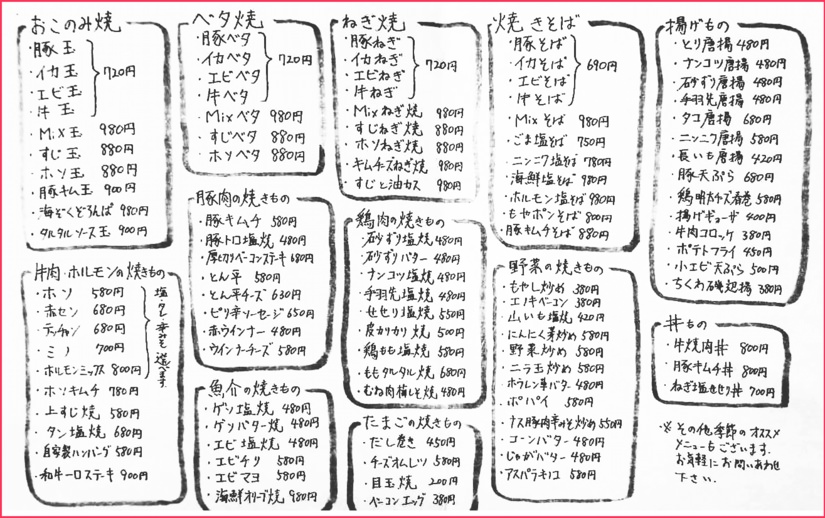 おこのみ焼
・豚玉
・イカ玉
・エビ玉
・牛玉
720円
・Mix玉 980円
・すじ玉 880円
・ホソ玉 880円
・豚キム玉 900円
・海ぞくどろんぱ 980円
・タルタルソース玉 900円
ベタ焼
・豚ベタ
・イカベタ
・エビベタ
・牛ベタ
720円
・Mixベタ 980円
・すじベタ 880円
・ホソベタ 880円
ねぎ焼
・豚ねぎ
・イカねぎ
・エビねぎ
・牛ねぎ
720円
・Mixねぎ焼 980円
・すじねぎ焼 880円
・ホソねぎ焼 880円
・キムチーズねぎ焼 980円
・すじと油カス 980円
焼きそば
・豚そば
・イカそば
・エビそば
・牛そば
690円
・Mixそば 980円
・ごま塩そば 750円
・ニンニク塩そば 780円
・海鮮塩そば 980円
・ホルモン塩そば 980円
・もやポンそば 800円
・豚キムそば 880円
揚げもの
・とり唐揚 480円
・ナンコツ唐揚 480円
・砂ずり唐揚 480円
・手羽先唐揚 480円
・タコ唐揚 680円
・ニンニク唐揚 580円
・長いも唐揚 420円
・豚天ぷら 680円
・鶏明太チーズ春巻 580円
・揚げギョーザ 400円
・牛肉コロッケ 380円
・ポテトフライ 450円
・小エビ天ぷら 500円
・ちくわ磯辺揚 380円
牛肉・ホルモンの焼きもの
・ホソ 580円
・赤セン 680円
・テッチャン 680円
・ミノ 700円
・ホルモンミックス 800円
塩・タレ・辛みそ選べます
・ホソキムチ 780円
・上すじ焼 580円
・タン塩焼 680円
・自家製ハンバーグ 580円
・和牛一口ステーキ 900円
豚肉の焼きもの
・豚キムチ 580円
・豚トロ塩焼 480円
・厚切りベーコンステーキ 680円
・とん平 580円
・とん平チーズ 630円
・ピリ辛ソーセージ 650円
・赤ウインナー 480円
・ウインナーチーズ 580円
魚介の焼きもの
・ゲソ塩焼 480円
・ゲソバター焼 480円
・エビ塩焼 480円
・エビチリ 580円
・エビマヨ 580円
・海鮮オリーブ焼 980円
鶏肉の焼きもの
・砂ずり塩焼 480円
・砂ずりバター 480円
・ナンコツ塩焼 480円
・手羽先塩焼 480円
・せせり塩焼 550円
・皮かりかり焼 500円
・鶏もも塩焼 580円
・ももタルタル焼 680円
・むね肉梅しそ焼 480円
たまごの焼きもの
・だし巻き 450円
・チーズオムレツ 580円
・目玉焼 200円
・ベーコンエッグ 380円
野菜の焼きもの
・もやし炒め 380円
・エノキベーコン 380円
・山いも塩焼 420円
・にんにく芽炒め 580円
・野菜炒め 580円
・ニラ玉炒め 580円
・ホウレン草バター 480円
・ポパイ 580円
・ナス豚肉辛みそ炒め 550円
・コーンバター 480円
・じゃがバター 480円
・アスパラキノコ 580円
丼もの
・牛焼肉丼 800円
・豚キムチ丼 800円
・ねぎ塩せせり丼 700円
※その他季節のオススメ
メニューもございます。
お気軽にお問いあわせ
下さい。